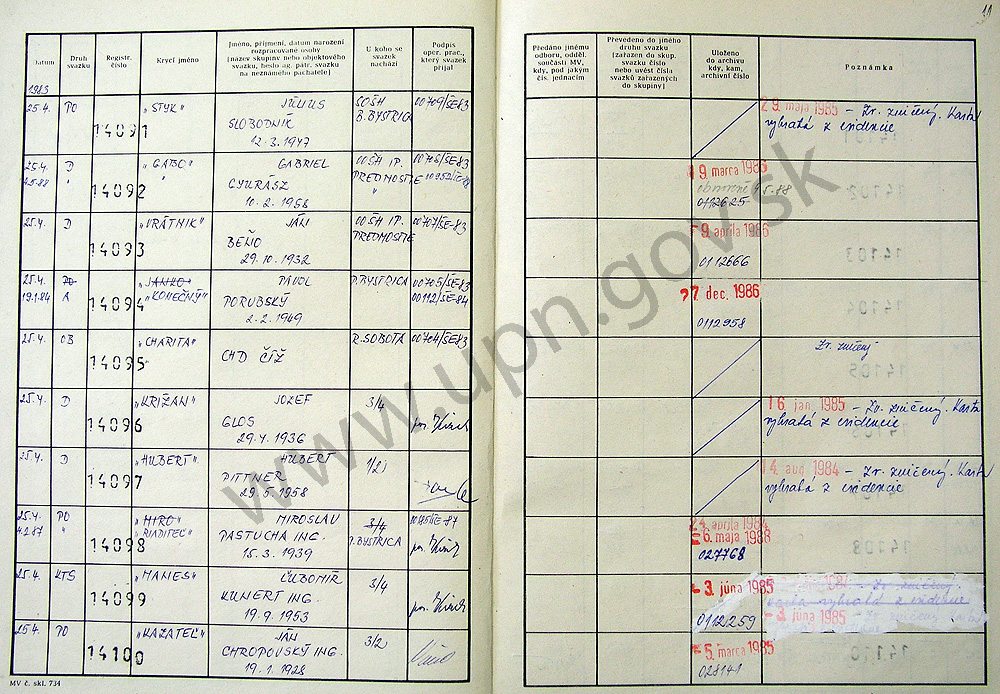 11
Datum
Druh svazku
Registr. číslo
Krycí jméno
Jméno, příjmení, datum narození
rozpracované osoby
[název skupiny nebo objektového
svazku, heslo ag. pátr. svazku
na neznámého pachatele]
U koho se
svazek
nachází
Podpis
oper. prac.,
který svazek
přijal
Předáno jinému
odboru, odděl.
součásti MV,
kdy, pod jakým
čís. jednacím
Převedeno do jiného
druhu svazku
[zařazen do skup.
svazku číslo
nebo uvést číslo
svazků zařazených
do skupiny]
Uloženo
do archivu
kdy, kam,
archivní číslo
Poznámka
1983
25.4. PO 14091 "STYK" JÚLIUS
SLOBODNÍK
12.3.1947
SOŠH
B.BYSTRICA
00709/SE-83
29. mája 1985 - Zv. zničený. Karta
vybratá z evidencie
25.4. D 14092 "GABO" GABRIEL
4.5.88 "
10.2.1958
OOŠH IP.
PREDMOSTIE
"
19. marca 1986
obnovené 4.5.88
0112625
25.4. D 14093 "VRÁTNIK" JÁN
BEŇO
29.10.1932
OOŠH IP.
PREDMOSTIE
00707/SE-83
9. apríla 1986
0112666
25.4. PO 14094 "JANKO" PAVOL
19.1.84 A "KONEČNÝ" PORUBSKÝ
2.2.1949
P.BYSTRICA
00705/SE-83
00112/SE-84
7 dec. 1986
0112958
25.4. OB 14095 "CHARITA"
CHD ČÍŽ
R.SOBOTA
00704/SE-83
Zv. zničený
25.4. D 14096 "KRIŽAN" JOZEF
GLOS
29.4.1936
3/4
16. jan. 1985 - Zv. zničený. Karta
vybratá z evidencie
25.4. D 14097 "HUBERT" HUBERT
PITTNER
29.5.1958
1/2
14. aug. 1984 - Zv. zničený. Karta
vybratá z evidencie
25.4. PO 14098 "MIRO" MIROSLAV
4.2.87 " "RIADITEĽ" PASTUCHA ING.
15.3.1939
3/4
P.BYSTRICA
24. apríla 1984
6. mája 1988
027768
25.4. KTS 14099 "MANES" ĽUBOMÍR
KUNERT ING.
19.9.1953
3/4
3. júna 1985
0112259
Zv. zničený
karta vybratá z evidencie
3. júna 1985
25.4. PO 14100 "KAZATEĽ" JÁN
CHROPOVSKÝ ING.
19.1.1928
3/2
5. marca 1985
028141
MV č. skl. 734
www.upn.gov.sk